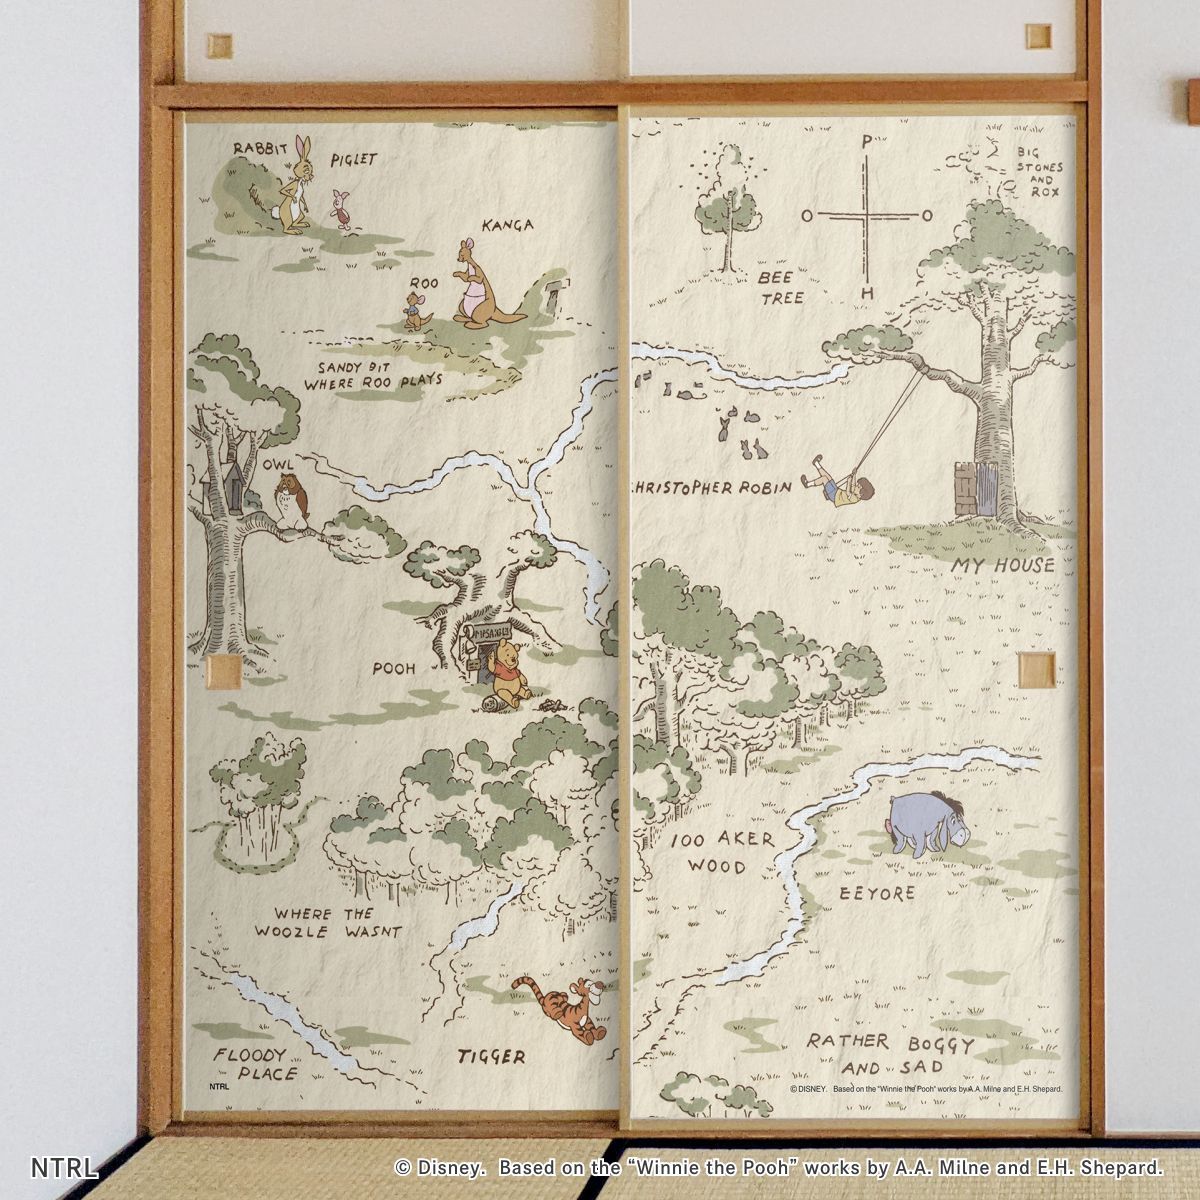 RABBIT
PIGLET
KANGA
ROO
SANDY BIT
WHERE ROO PLAYS
OWL
MR SANDERZ
POOH
WHERE THE
WOOZLE WASNT
FLOODY
PLACE
NTRL
TIGGER
P
O O
H
BIG
STONES
AND
ROX
BEE
TREE
CHRISTOPHER ROBIN
MY HOUSE
100 AKER
WOOD
EEYORE
RATHER BOGGY
AND SAD
© DISNEY. Based on the "Winnie the Pooh" works by A.A. Milne and E.H. Shepard.
NTRL
© Disney. Based on the “Winnie the Pooh” works by A.A. Milne and E.H. Shepard.